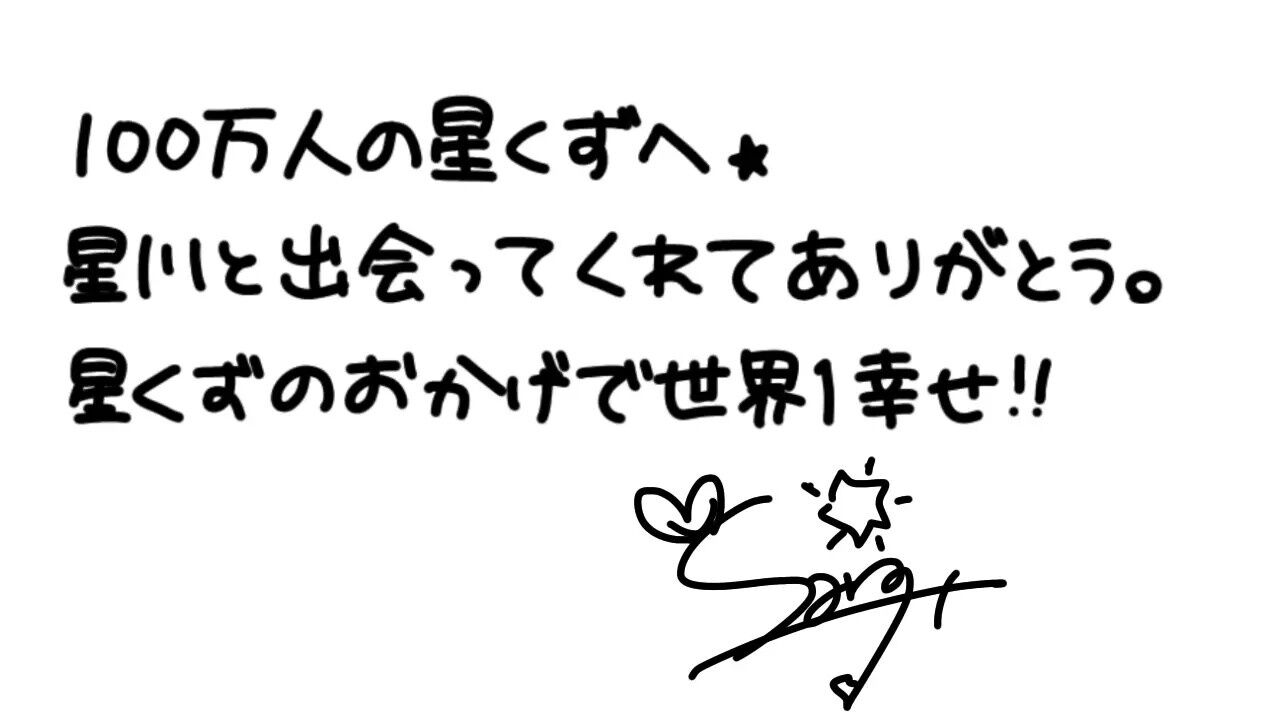 100万人の星くずへ★
星川と出会ってくれてありがとう。
星くずのおかげで世界1幸せ!!